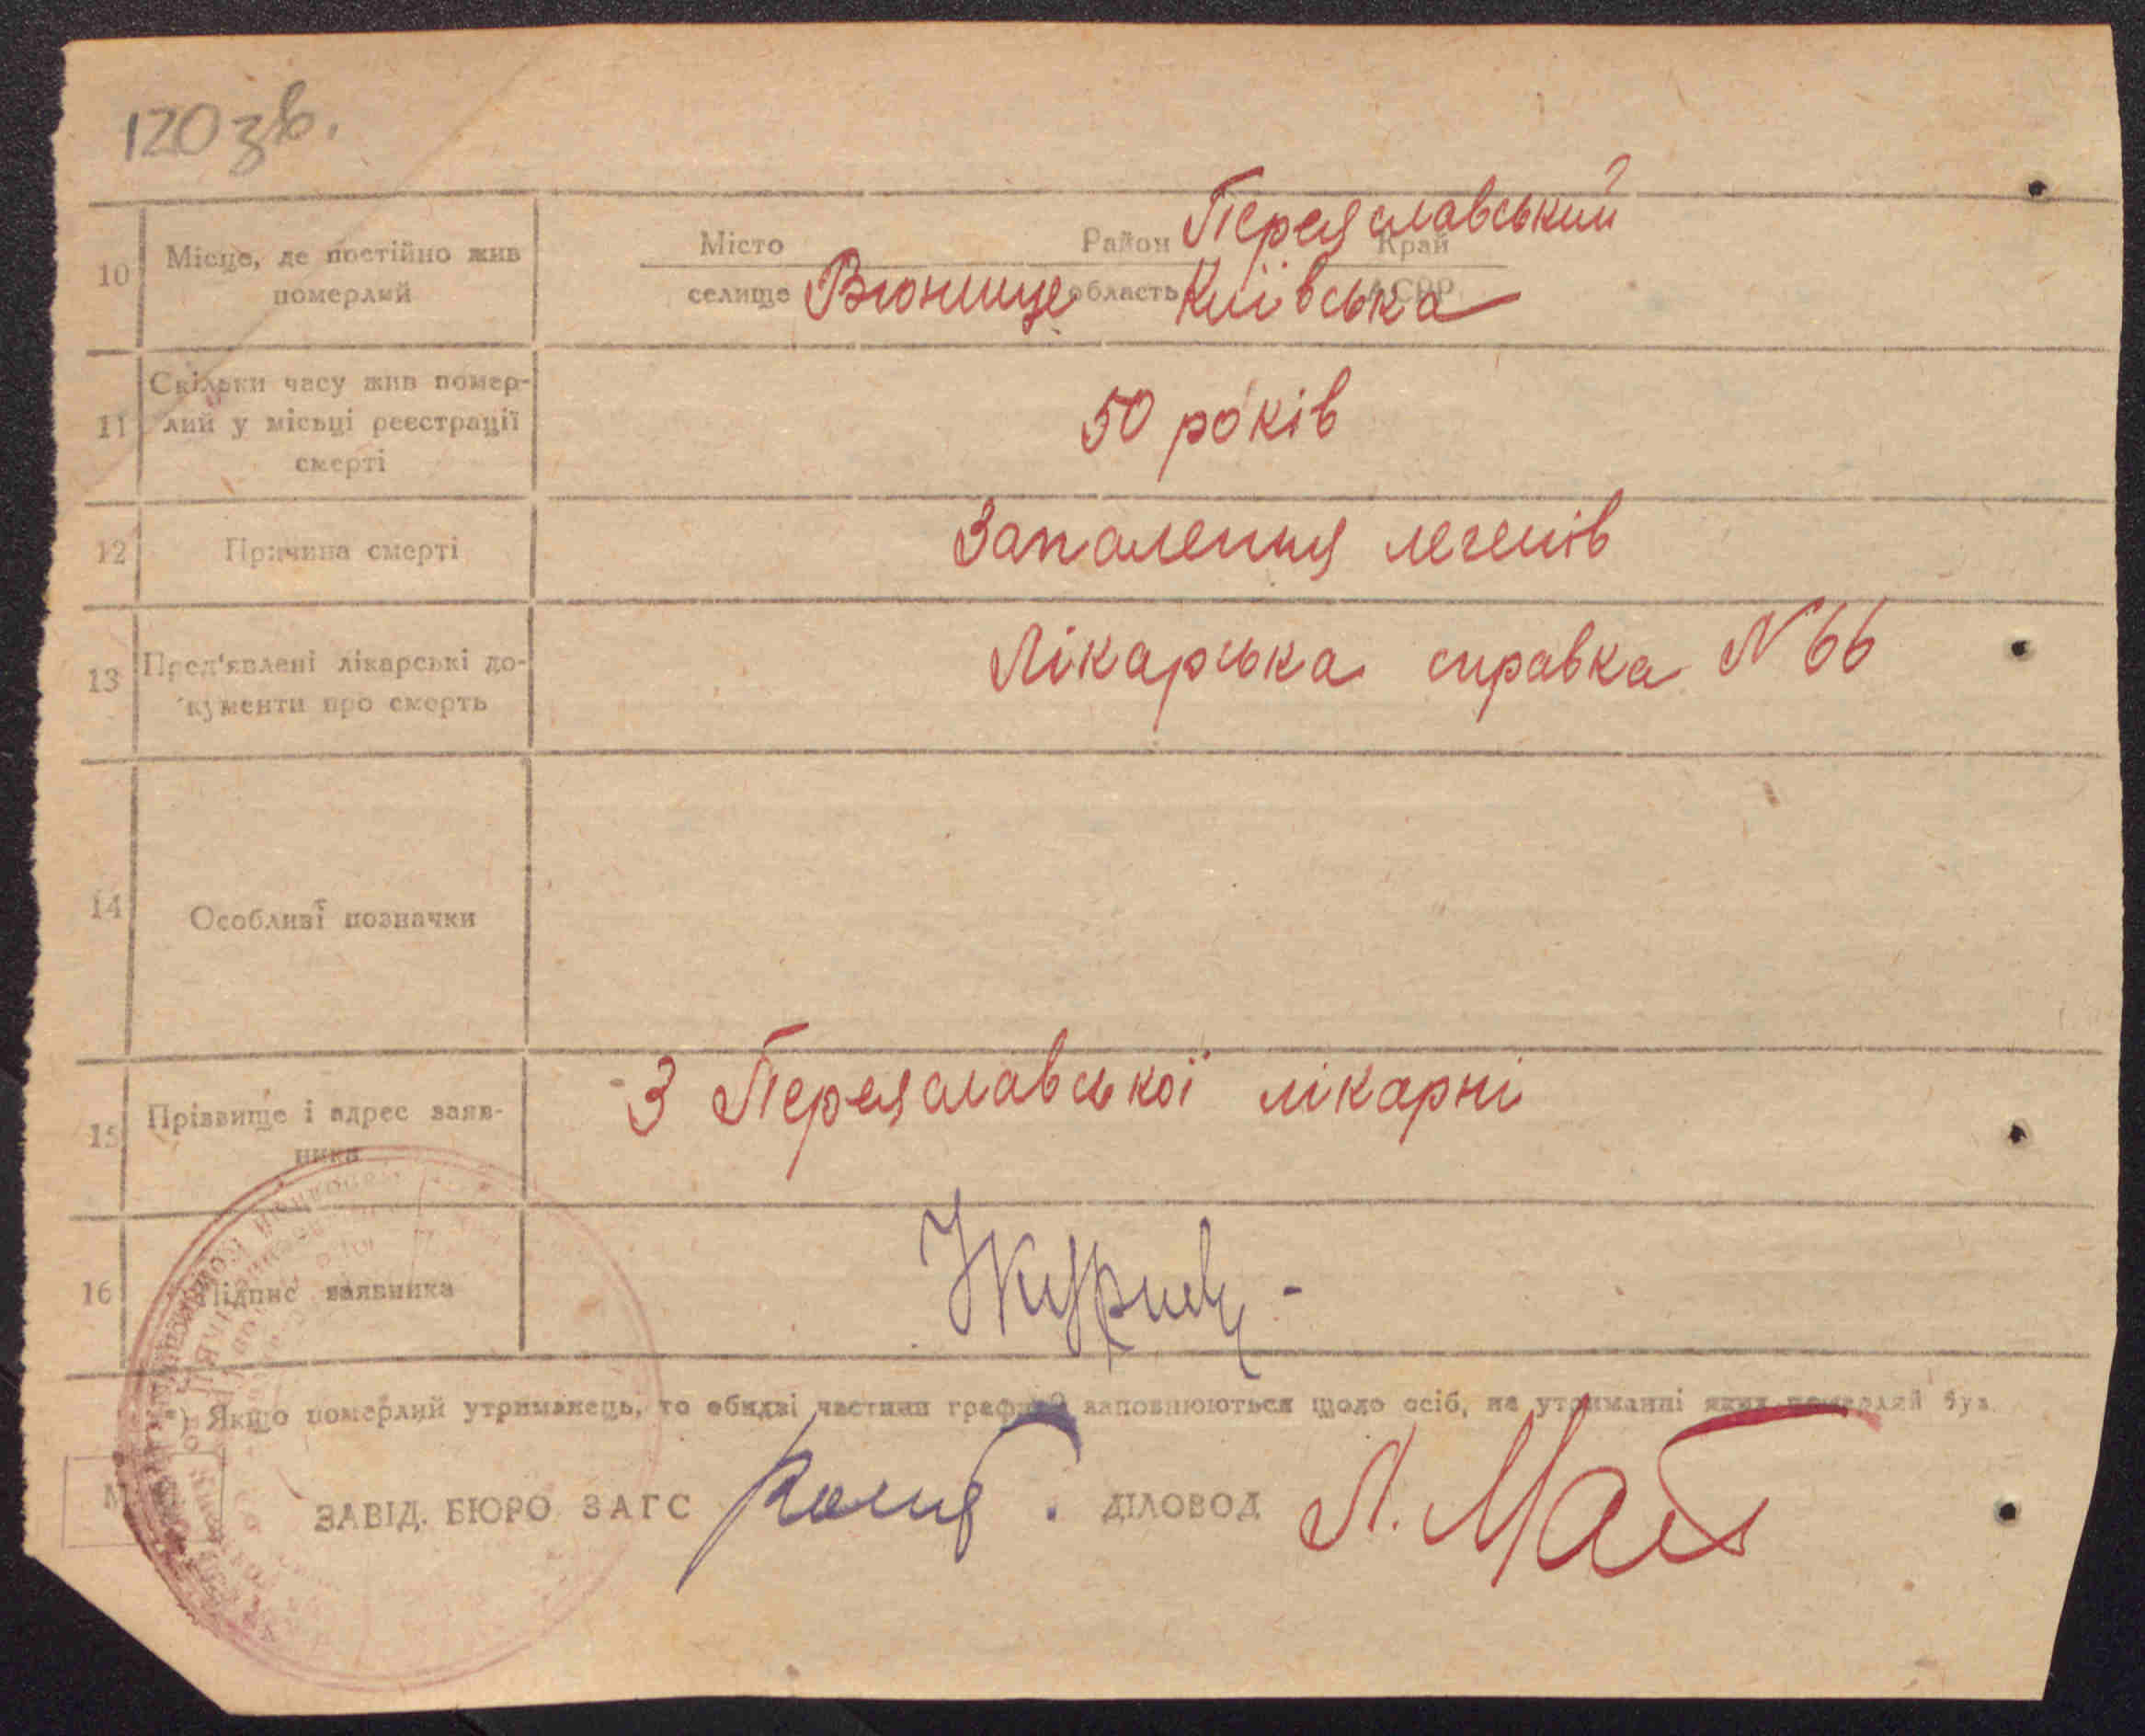 120 зв.
10 Місце, де постійно жив померлий
Місто Район Переяславський Край
селище Вюнище область Київська АСРР
11 Скільки часу жив померлий у місьці реєстрації смерті
50 років
12 Причина смерті
Запалення легенів
13 Пред'явлені лікарські документи про смерть
Лікарська справка N 66
14 Особливі позначки
15 Прізвище і адрес заявника
З Переяславської лікарні
16 Підпис заявника
*) Якщо померлий утриманець, то обидві частини графи 9 заповнюються щодо осіб, на утриманні яких померлий був
М
ЗАВІД. БЮРО ЗАГС ДІЛОВОД